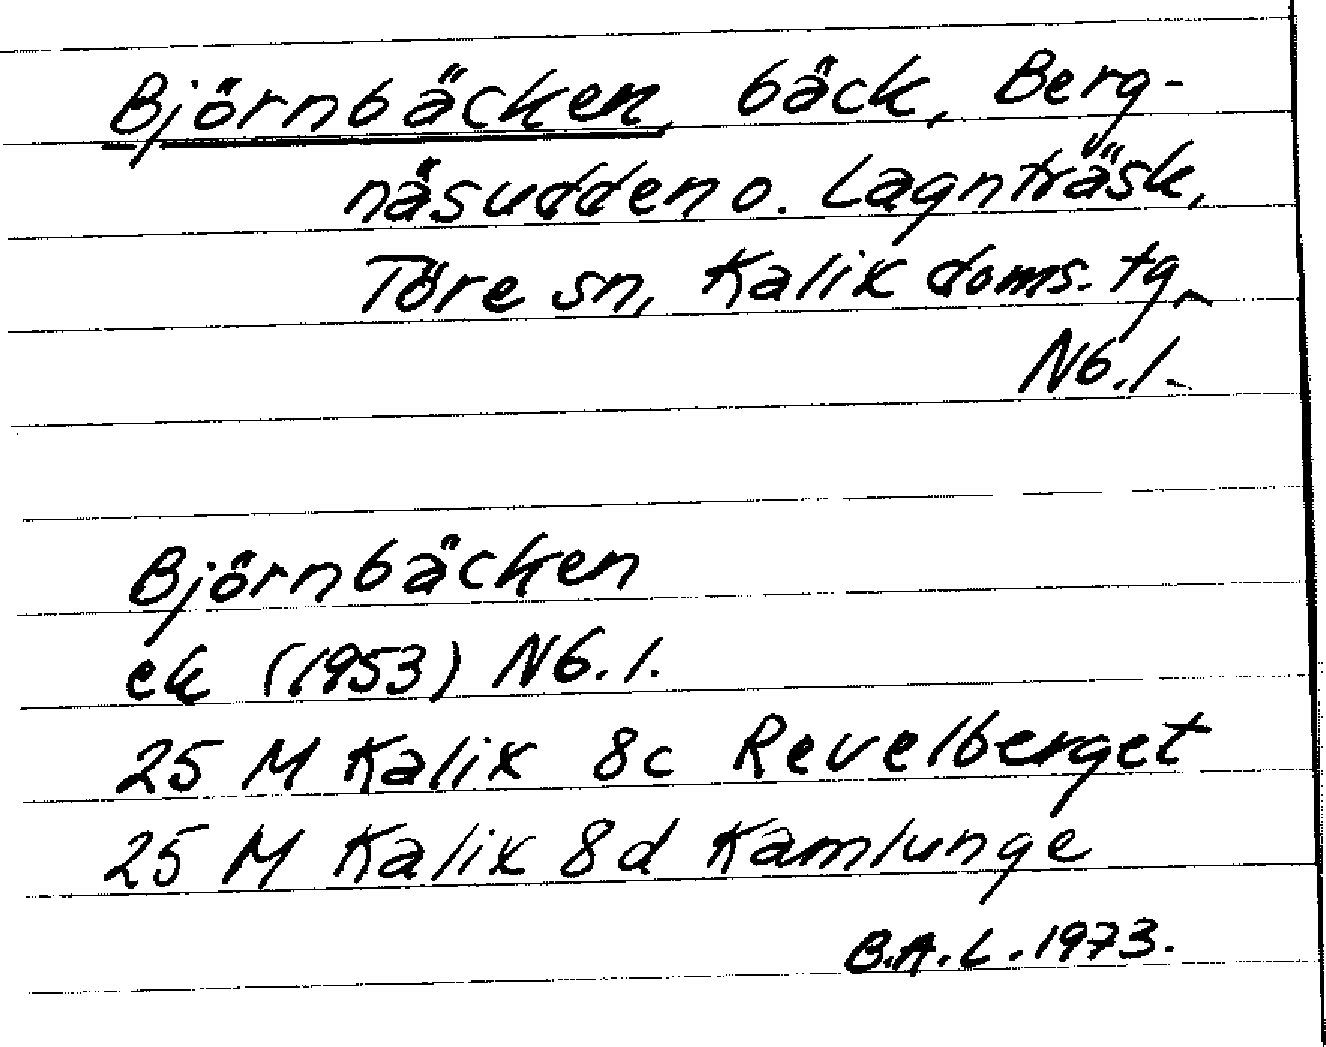 Björnbäcken, bäck, Berg-
näsudden o. Lagnträsk,
Töre sn, Kalix doms. tg,
Nb. l.
Björnbäcken
ek (1953) Nb. l.
25 M Kalix 8c Revelberget
25 M Kalix 8d Kamlunge
B.A.L. 1973.